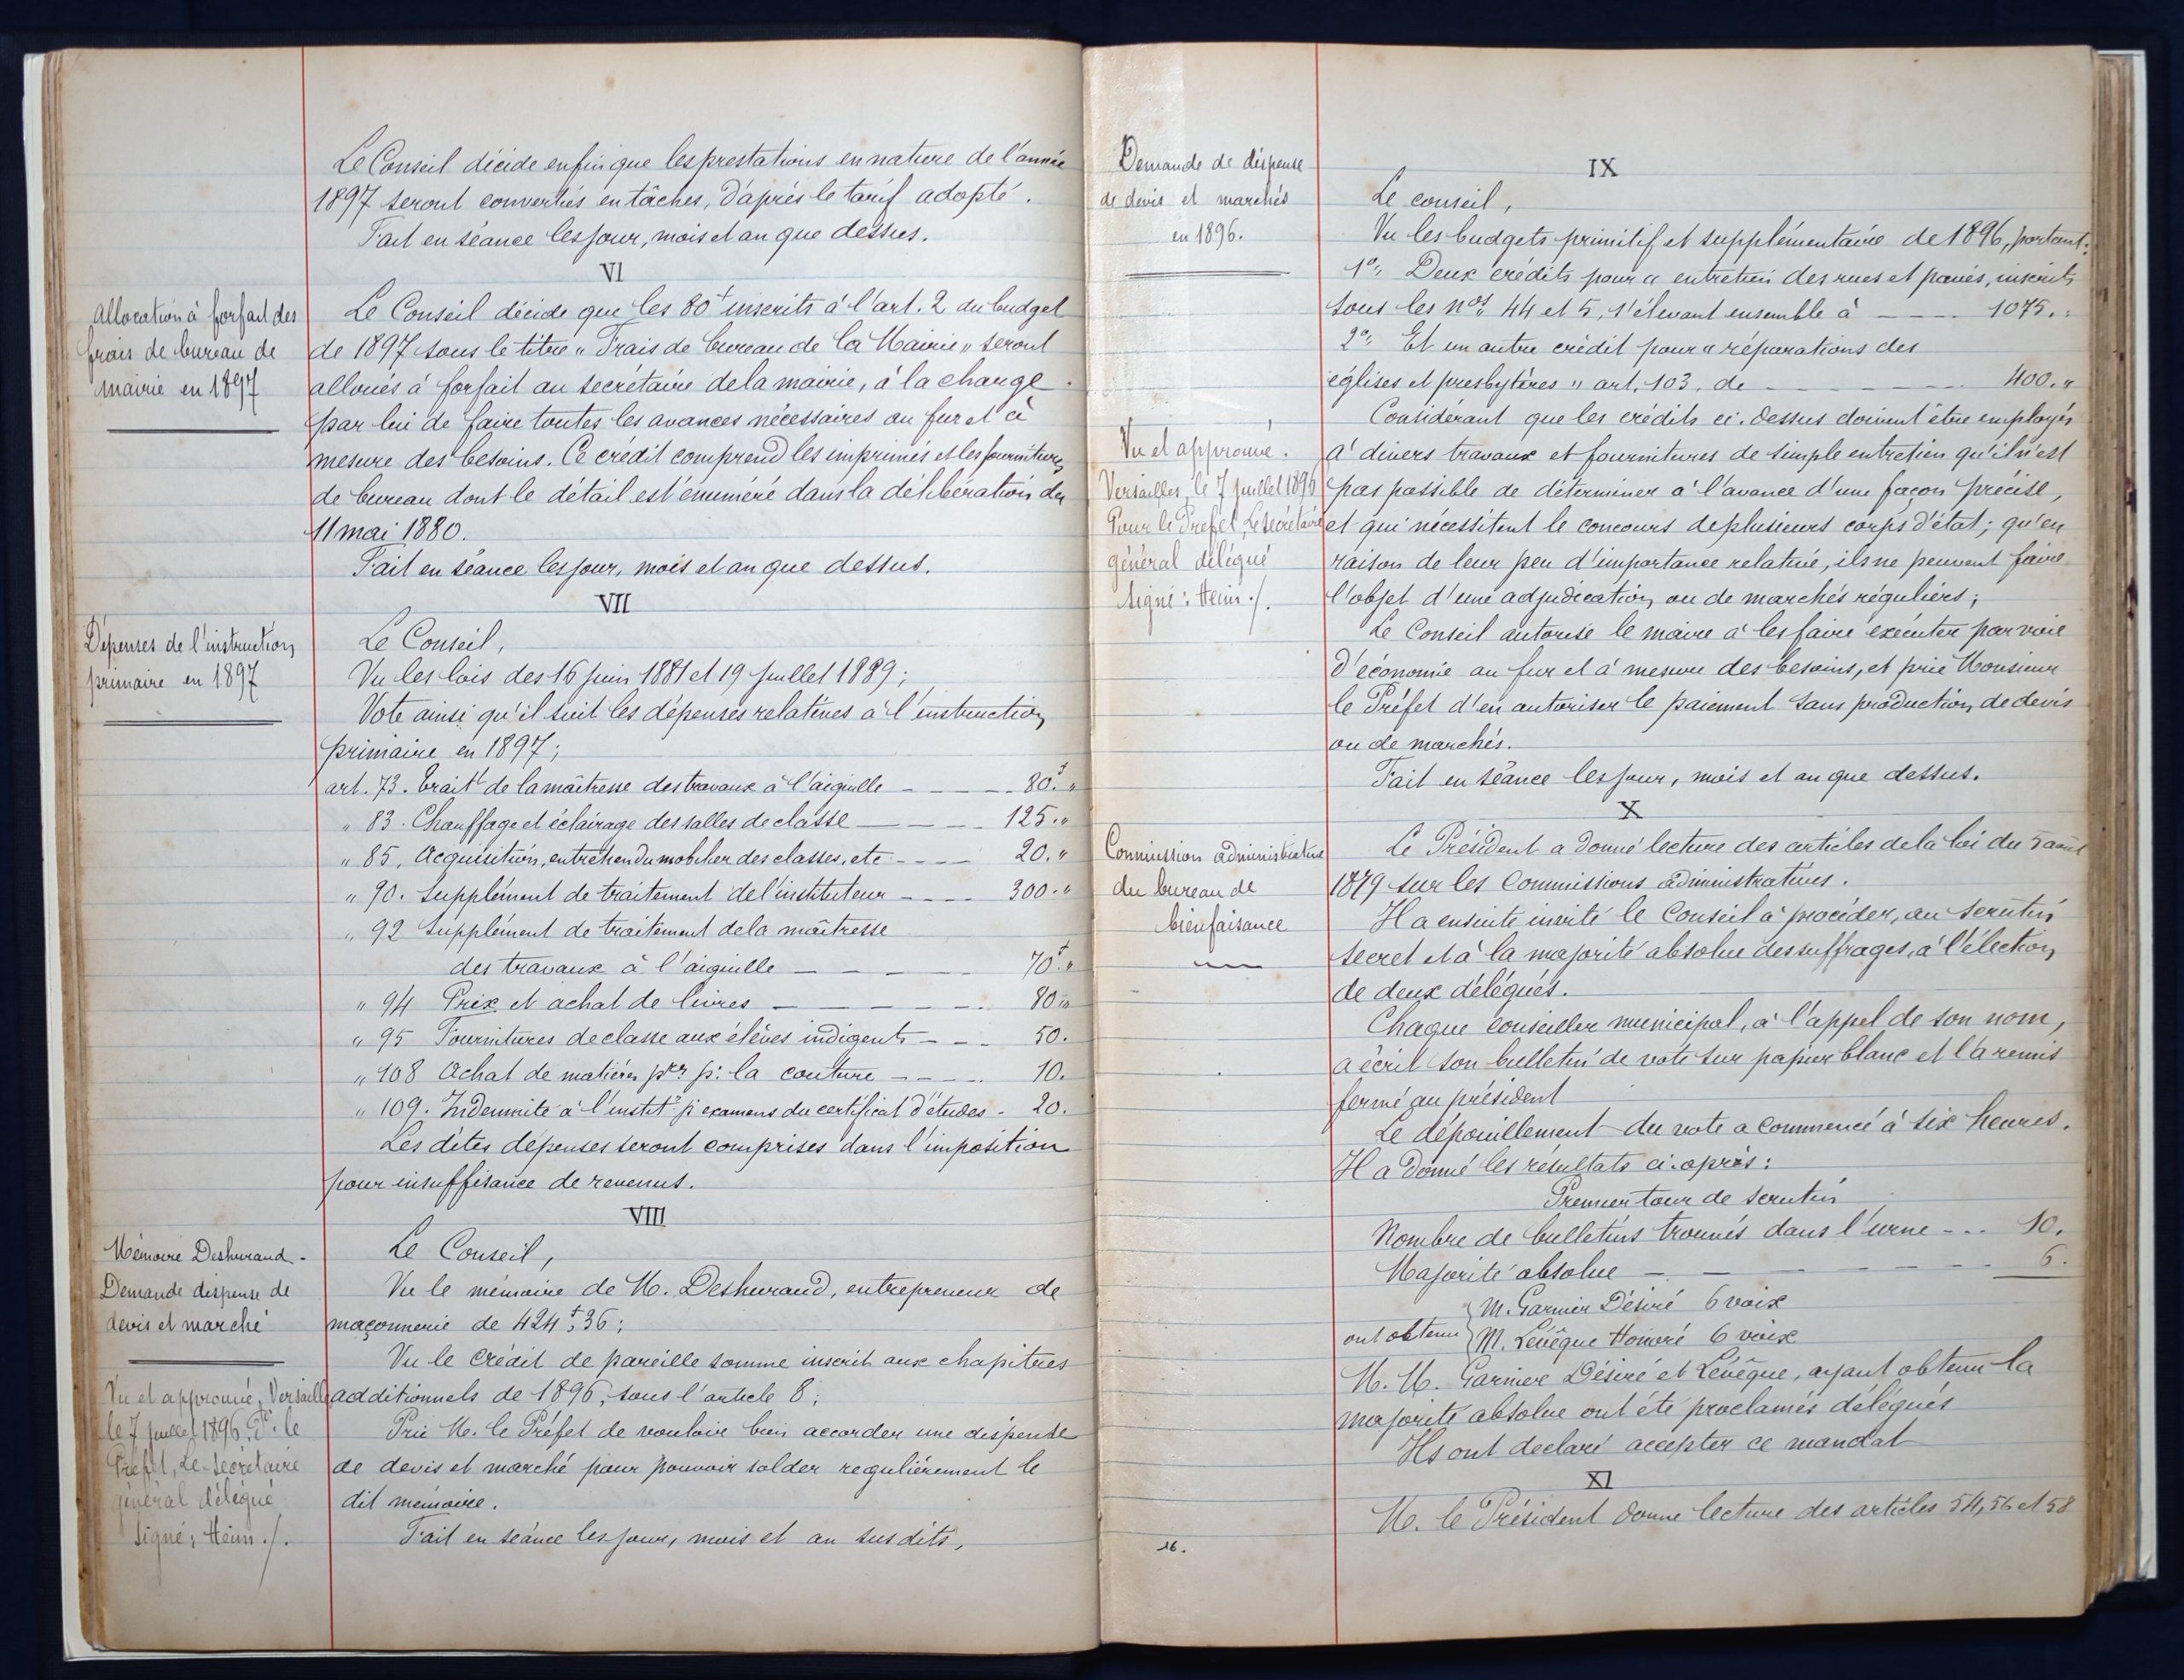 Le Conseil décide enfin que les prestations en nature de l'année
1897 seront converties en tâches, d'après le tarif adopté.
Fait en séance les jour, mois et an que dessus.
VI
Allocation à forfait des
frais de bureau de
mairie en 1897
Le Conseil décide que les 80f inscrits à l'art. 2 du budget
de 1897 sous le titre " Frais de bureau de la Mairie " seront
alloués à forfait au secrétaire de la mairie, à la charge
par lui de faire toutes les avances nécessaires au fur et à
mesure des besoins. Ce crédit comprend les imprimés et les fournitures
de bureau dont le détail est énuméré dans la délibération du
11 mai 1880.
Fait en séance les jour, mois et an que dessus.
VII
Dépenses de l'instruction
primaire en 1897
Le Conseil,
Vu les lois des 16 juin 1881 et 19 juillet 1889;
Vote ainsi qu'il suit les dépenses relatives à l'instruction
primaire en 1897;
art. 73. Trait.t de la maîtresse des travaux à l'aiguille - - - - 80.f "
" 83. Chauffage et éclairage des salles de classe - - - - 125. "
" 85. Acquisition, entretien du mobilier des classes, etc - - - - 20. "
" 90. Supplément de traitement de l'instituteur - - - - 300. "
" 92 Supplément de traitement de la maîtresse
des travaux à l'aiguille - - - - 70.f "
" 94 Prix et achat de livres - - - - 80 "
" 95 Fournitures de classe aux élèves indigents - - - 50.
" 108 Achat de matières p.res p: la couture - - - - 10.
" 109. Indemnité à l'instit.r p: examens du certificat d'études - 20.
Les dites dépenses seront comprises dans l'imposition
pour insuffisance de revenus.
VIII
Mémoire Deshurand -
Demande dispense de
devis et marché
Le Conseil,
Vu le mémoire de M. Deshurand, entrepreneur de
maçonnerie de 424f,36;
Vu le crédit de pareille somme inscrit aux chapitres
additionnels de 1896, sous l'article 8;
Prie M. le Préfet de vouloir bien accorder une dispense
de devis et marché pour pouvoir solder regulièrement le
dit mémoire.
Fait en séance les jour, mois et an susdits,
Vu et approuvé, Versailles
le 7 juillet 1896. Pr. le
Préfet, Le Secrétaire
général délégué
Signé: Hein./.
Demande de dispense
de devis et marchés
en 1896.
IX
Le conseil,
Vu les budgets primitif et supplémentaire de 1896, portant:
1°" Deux crédits pour " entretien des rues et pavés, inscrits
sous les nos 44 et 5, s'élevant ensemble à - - - 1075. "
2°" Et un autre crédit pour " réparations des
églises et presbytères " art. 103, de - - - - 400. "
Considérant que les crédits ci-dessus doivent être employés
à divers travaux et fournitures de simple entretien qu'il n'est
pas possible de déterminer à l'avance d'une façon précise,
et qui nécessitent le concours de plusieurs corps d'état; qu'en
raison de leur peu d'importance relative, ils ne peuvent faire
l'objet d'une adjudication ou de marchés réguliers;
Le Conseil autorise le maire à les faire exécuter par voie
d'économie au fur et à mesure des besoins, et prie Monsieur
le Préfet d'en autoriser le paiement sans production de devis
ou de marchés.
Fait en séance les jour, mois et an que dessus.
Vu et approuvé.
Versailles, le 7 juillet 1896
Pour le Préfet, Le secrétaire
général délégué
Signé: Hein./.
X
Commission administrative
du bureau de
bienfaisance
Le Président a donné lecture des articles de la loi du 5 août
1879 sur les Commissions administratives.
Il a ensuite invité le Conseil à procéder, au scrutin
secret et à la majorité absolue des suffrages, à l'élection
de deux délégués.
Chaque conseiller municipal, à l'appel de son nom,
a écrit son bulletin de vote sur papier blanc et l'a remis
fermé au président
Le dépouillement du vote a commencé à six heures.
Il a donné les résultats ci-après:
Premier tour de scrutin
Nombre de bulletins trouvés dans l'urne - - - 10.
Majorité absolue - - - - 6.
ont obtenu { M. Garnier Désiré 6 voix
M. Lévêque Honoré 6 voix
M. M. Garnier Désiré et Lévêque, ayant obtenu la
majorité absolue ont été proclamés délégués
Ils ont declaré accepter ce mandat
XI
M. le Président donne lecture des articles 54, 56 et 58
16.